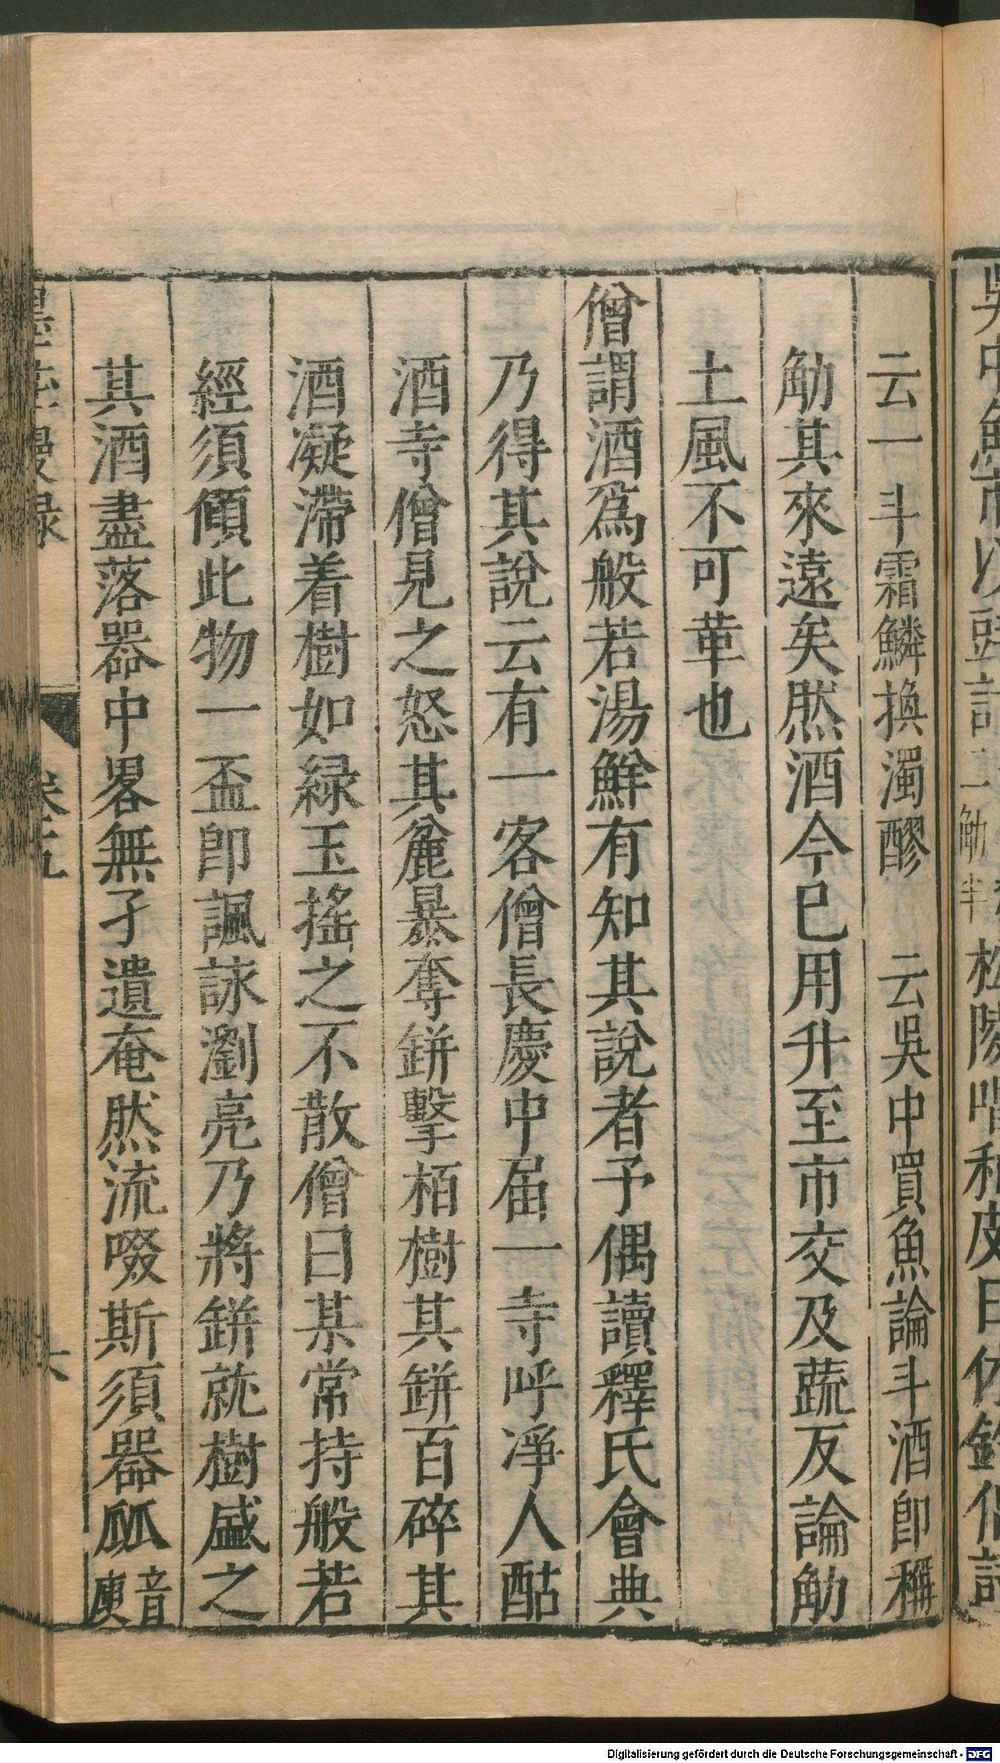 云一斗霜鱗換濁醪　云吳中買魚論斗酒卽稱
觔其來遠矣然酒今巳用升至市交及蔬反論觔
土風不可革也
僧謂酒爲般若湯鮮有知其說者予偶讀釋氏會典
乃得其說云有一客僧長慶中届一寺呼凈人酤
酒寺僧見之怒其麄暴奪缾擊栢樹其缾百碎其
酒凝滯着樹如緑玉搖之不散僧曰某常持般若
經須傾此物一盃卽諷詠瀏亮乃將缾就樹盛之
其酒盡落器中畧無孑遺奄然流啜斯須器㼌音庾
墨莊漫録
卷五
六